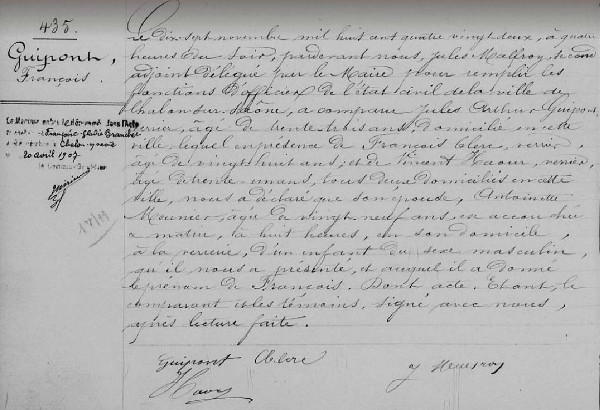 435.
Guipont,
François.
20 avril 1907
Le dix sept novembre mil huit cent quatre vingt deux, à quatre
heures du soir, pardevant nous, Jules Malfroy, second
adjoint délégué par le Maire pour remplir les
fonctions d'officier de l'état civil de la ville de
Chalon sur Saône, a comparu Jules Arthur Guipont,
verrier, âgé de trente trois ans, domicilié en cette
ville lequel en présence de François Clerc, verrier,
âgé de vingt huit ans; et de Vincent verrier,
âgé de trente ans, tous deux domiciliés en cette
ville, nous a déclaré que son épouse, Antoinette
Meunier, âgée de vingt neuf ans, est accouchée
ce matin, à huit heures, en son domicile,
à la verrerie, d'un enfant du sexe masculin,
qu'il nous a présenté, et auquel il a donné
le prénom de François. Dont acte. Et ont, le
comparant et les témoins, signé avec nous,
après lecture faite.
Guipont Clerc